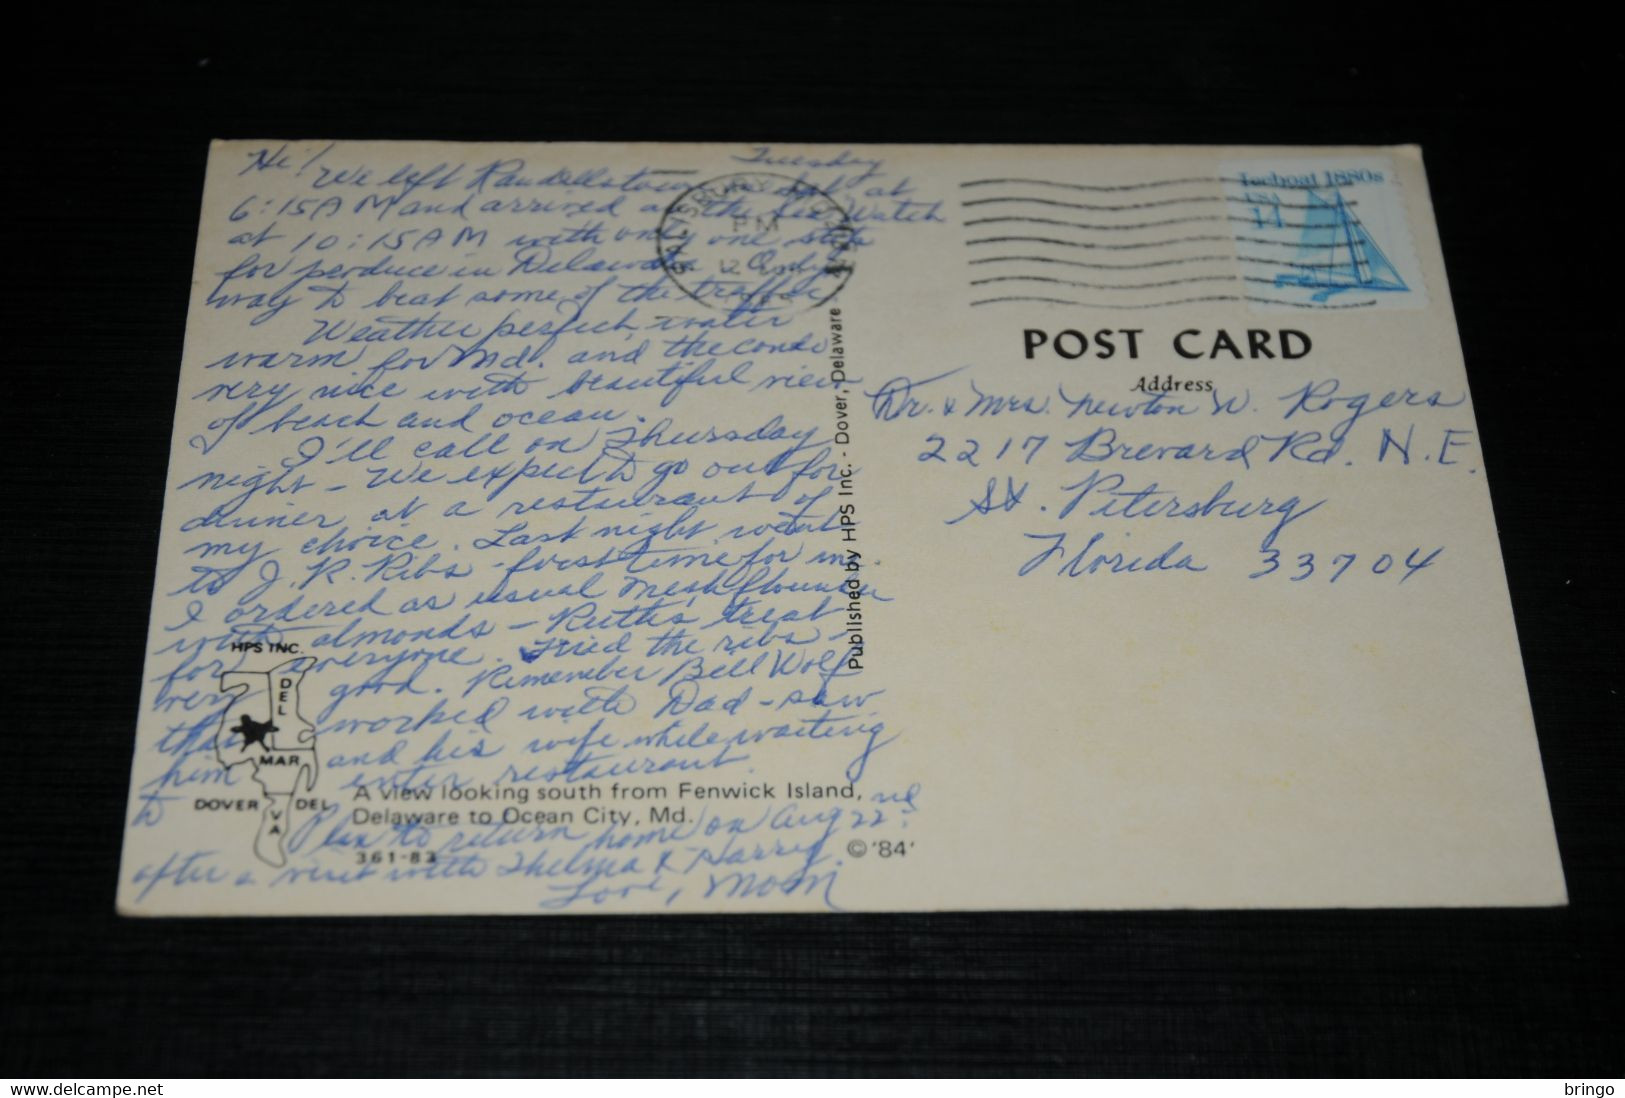 Tuesday
Hi!
We left Randallstown on Sat at
6:15AM and arrived at the Sea Watch
at 10:15AM with only one stop
for produce in Delaware. Only
way to beat some of the traffic.
Weather perfect, water
warm for Md. and the condo
very nice with beautiful view
of beach and ocean.
I'll call on Thursday
night - We expect to go out for
dinner at a restaurant of
my choice. Last night went
to J.R. Ribs - first time for me.
I ordered as usual flounder
with almonds - Ruth's treat
for everyone. Tried the ribs -
very good. Remember Bill Wolf
that worked with Dad - saw
him and his wife while waiting
to enter restaurant.
Plan to return home on Aug 22nd
after a visit with Thelma & Harry.
Love, Mom
HPS INC.
DEL
MAR
VA
DOVER DEL
A view looking south from Fenwick Island,
Delaware to Ocean City, Md.
361-83
©'84'
Published by HPS Inc. - Dover, Delaware
SALISBURY
PM
12
Iceboat 1880s
USA
14
POST CARD
Address
Dr. & Mrs. Newton W. Rogers
2217 Brevard Rd. N.E.
St. Petersburg
Florida 33704
www.delcampe.net
bringo